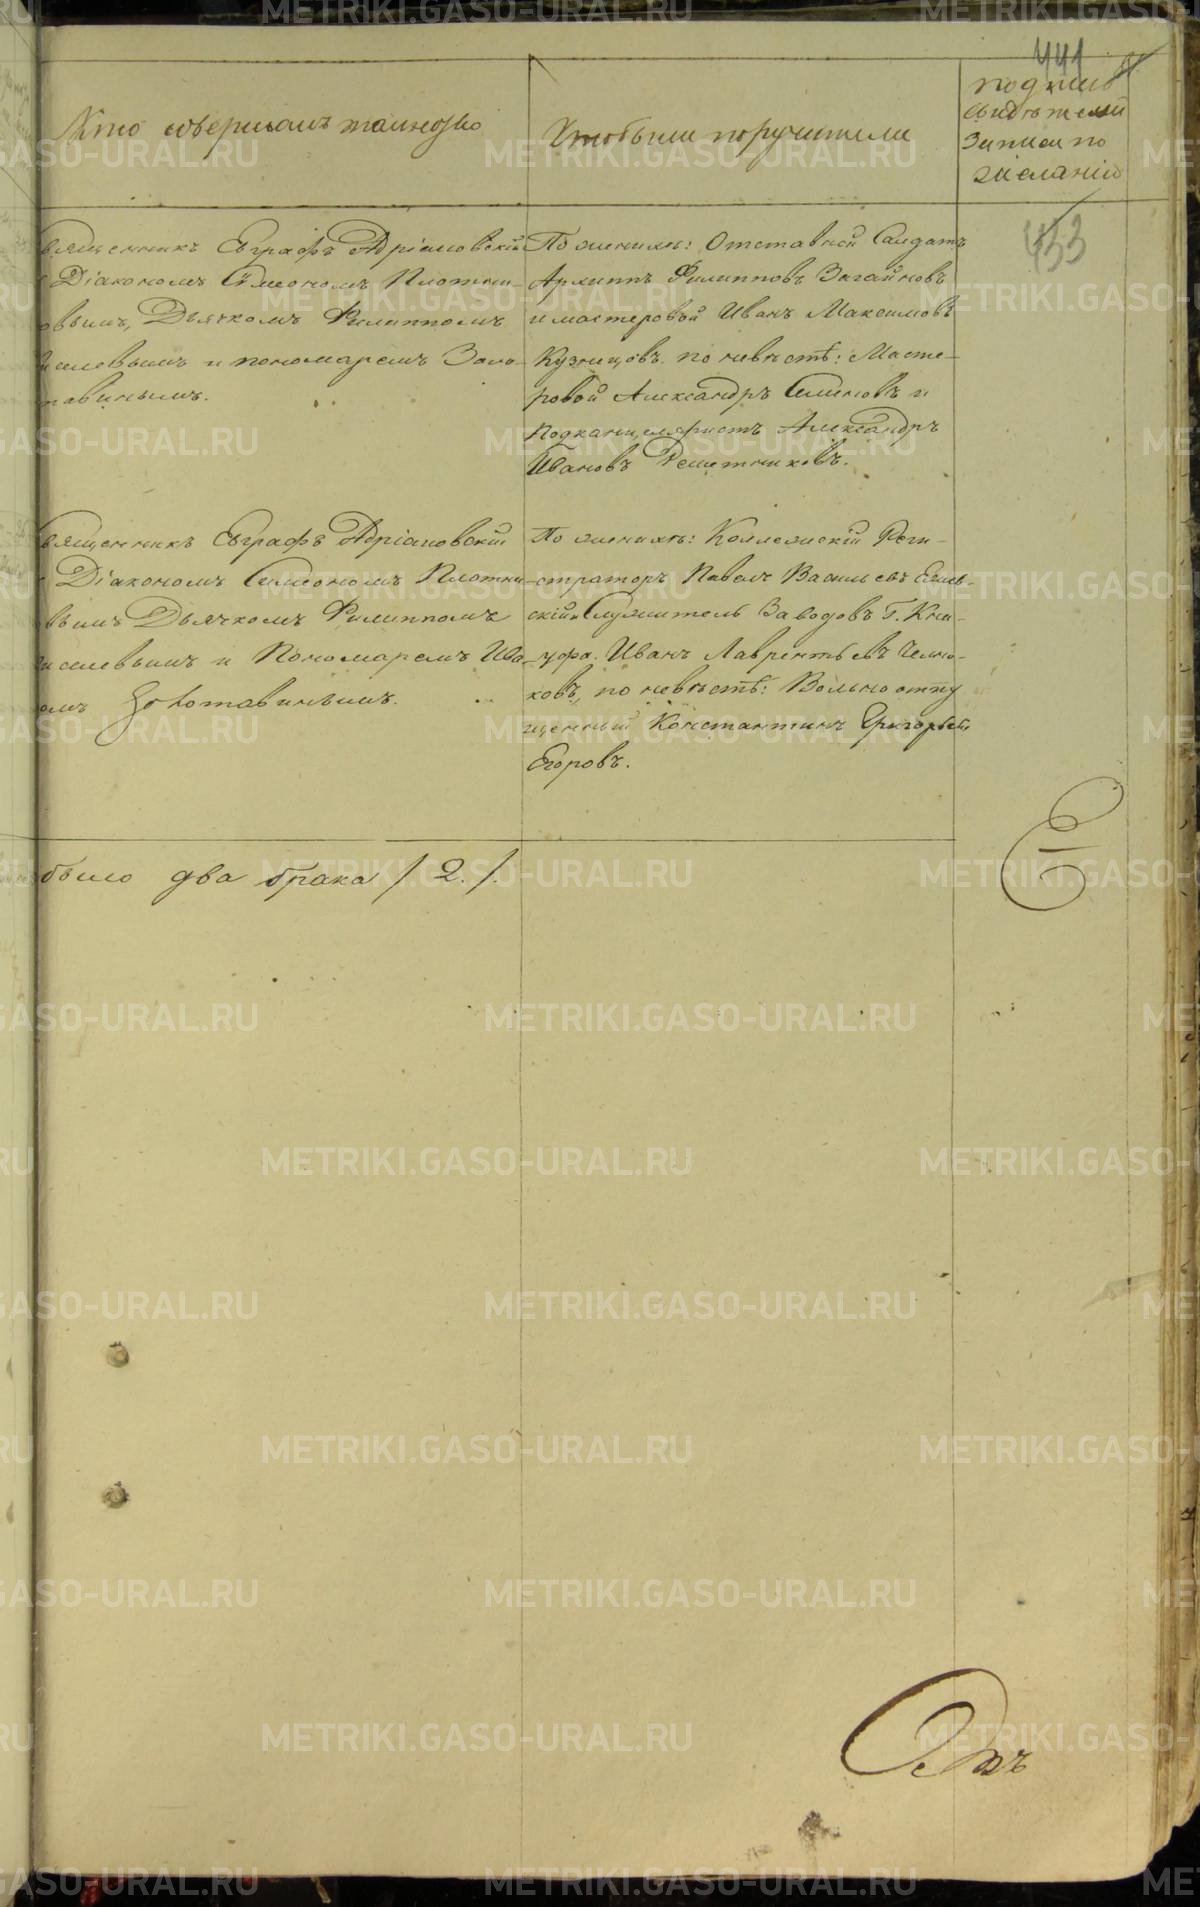 441
Кто совершалъ таинство
Кто были поручители
подпись
свидѣтелей
записи по
желанію
453
вященникъ Евграфъ Адріановскій
Діакономъ Симеономъ Плотни-
овымъ, Дьячкомъ Филиппомъ
иселевымъ и пономаремъ Золо-
тавинымъ.
По женихѣ: Отставной Салдатъ
Архиппъ Филипповъ Загайновъ
и мастеровой Иванъ Максимовъ
Кузнецовъ. по невѣстѣ: Масте-
ровой Александръ Семеновъ и
Подканцеляристъ Александръ
Ивановъ Решетниковъ.
вященникъ Евграфъ Адріановскій
Діакономъ Симеономъ Плотни-
вымъ Дьячкомъ Филиппомъ
иселевымъ и Пономаремъ Ива-
омъ Золотавинымъ.
По женихѣ: Коллежскій Реги-
страторъ Павелъ Васильевъ
скій, Служитель Заводовъ Г. Кна-
уфа. Иванъ Лаврентьевъ Челно-
ковъ, по невѣстѣ: Вольноотпу
щенный Константинъ Григорьевъ
Егоровъ.
было два брака / 2. /.